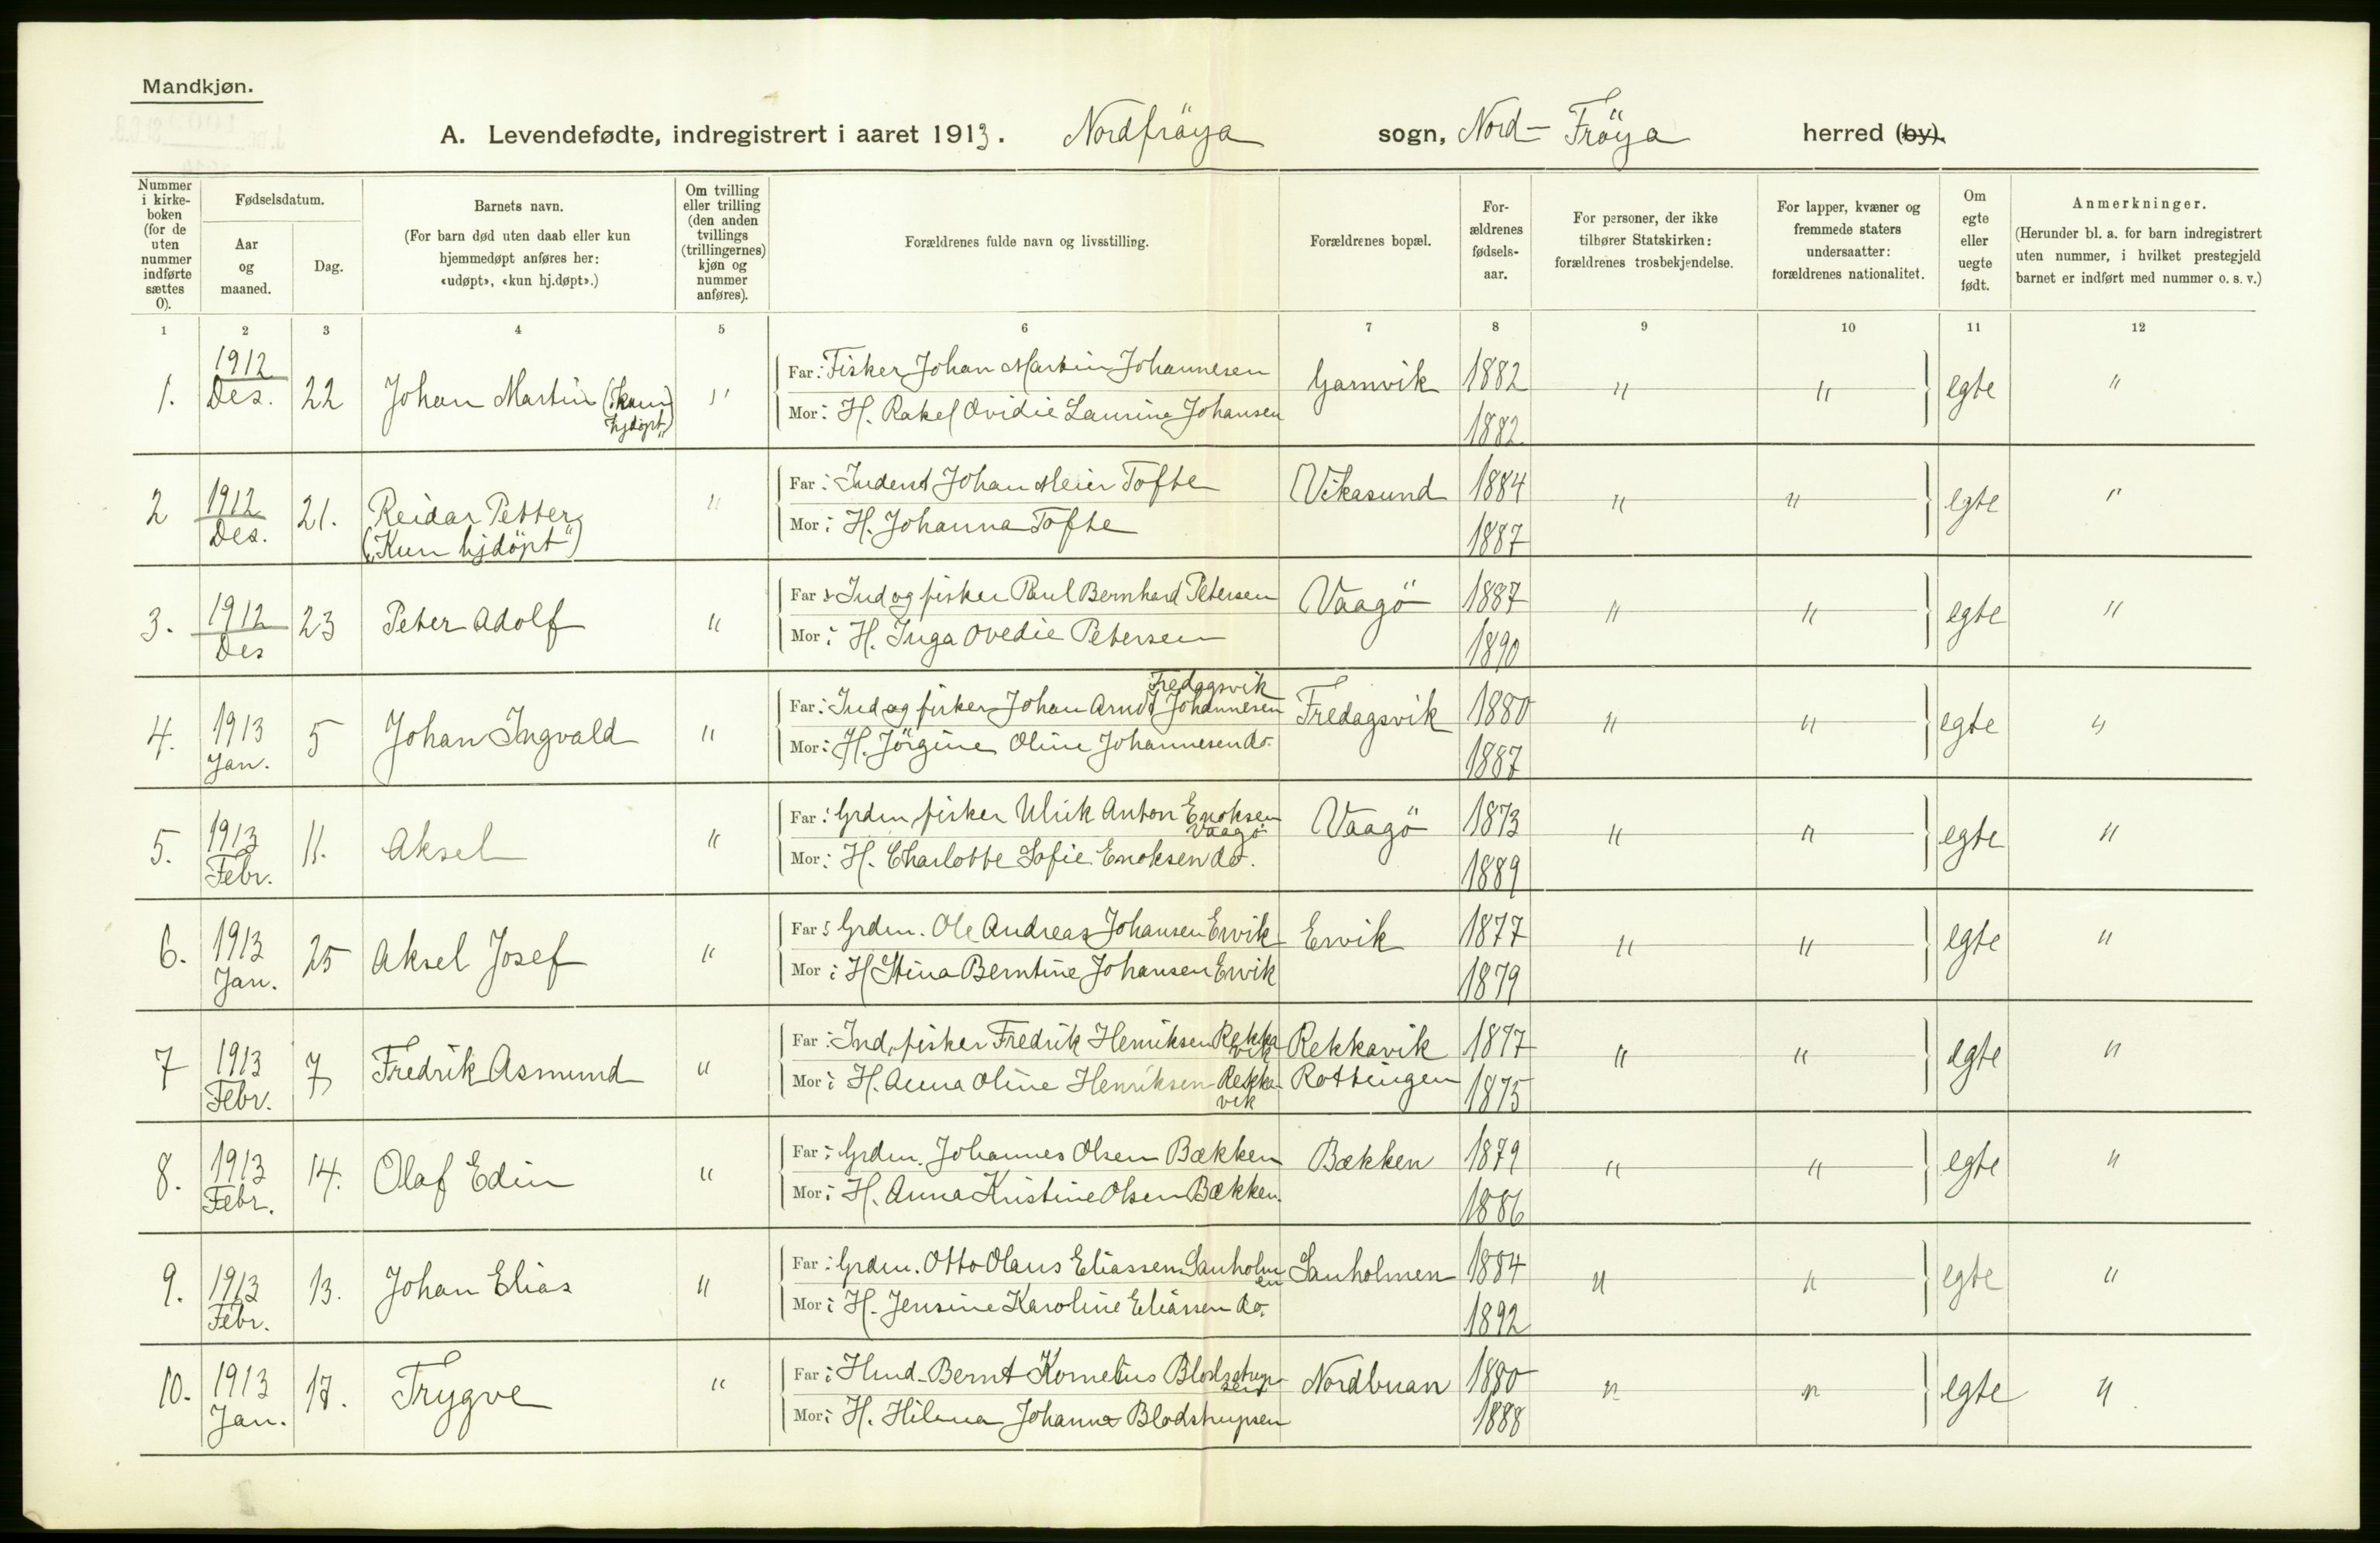 Mandkjøn.
A. Levendefødte, indregistrert i aaret 1913. Nordfröya sogn, Nord-Fröya herred (by).
Nummer i kirkeboken (for de uten nummer indførte sættes 0).
Fødselsdatum.
Aar og maaned.
Dag.
Barnets navn.
(For barn død uten daab eller kun hjemmedøpt anføres her: «udøpt», «kun hj.døpt».)
Om tvilling eller trilling (den anden tvillings (trillingernes) kjøn og nummer anføres).
Forældrenes fulde navn og livsstilling.
Forældrenes bopæl.
Forældrenes fødselsaar.
For personer, der ikke tilhører Statskirken: forældrenes trosbekjendelse.
For lapper, kvæner og fremmede staters undersaatter: forældrenes nationalitet.
Om egte eller uegte født.
Anmerkninger.
(Herunder bl. a. for barn indregistrert uten nummer, i hvilket prestegjeld barnet er indført med nummer o. s. v.)
1 2 3 4 5 6 7 8 9 10 11 12
1. 1912 Des. 22 Johan Martin („kun hjdöpt") " Far: Fisker Johan Martin Johannesen Garnvik 1882 " " egte "
Mor: H. Rakel Ovidie Laurine Johansen 1882
2 1912 Des. 21. Reidar Petter („Kun hjdöpt") " Far: Inderst Johan Meier Tofte Vikasund 1884 " " egte "
Mor: H. Johanna Tofte 1887
3. 1912 Des 23 Peter Adolf " Far: Ind og fisker Paul Bernhard Petersen Vaagö 1887 " " egte "
Mor: H. Inga Ovedie Petersen 1890
4. 1913 Jan. 5 Johan Ingvald " Far: Ind og fisker Johan Arndt Johannesen Fredagsvik Fredagsvik 1880 " " egte "
Mor: H. Jörgine Oline Johannesen do. 1887
5. 1913 Febr. 11. Aksel " Far: Grdm. fisker Ulrik Anton Enoksen Vaagö Vaagö 1873 " " egte "
Mor: H. Charlotte Sofie Enoksen do. 1889
6. 1913 Jan. 25 Aksel Josef " Far: Grdm. Ole Andreas Johansen Ervik Ervik 1877 " " egte "
Mor: H. Stina Berntine Johansen Ervik 1879
7 1913 Febr. 7 Fredrik Asmund " Far: Ind, fisker Fredrik Henriksen Rekkavik Rekkavik 1877 " " egte "
Mor: H. Anna Oline Henriksen Rekkavik Rottingen 1875
8. 1913 Febr. 14. Olaf Edin " Far: Grdm. Johannes Olsen Bækken Bækken 1879 " " egte "
Mor: H. Anna Kristine Olsen Bækken. 1886
9. 1913 Febr. 13. Johan Elias " Far: Grdm. Otto Olaus Eliassen Sauholmen Sauholmen 1884 " " egte "
Mor: H. Jensine Karoline Eliassen do. 1892
10. 1913 Jan. 17. Trygve " Far: Hmd. Bernt Kornelius Blodstrupsen Nordbuan 1880 " " egte "
Mor: H. Hilena Johanna Blodstrupsen 1888